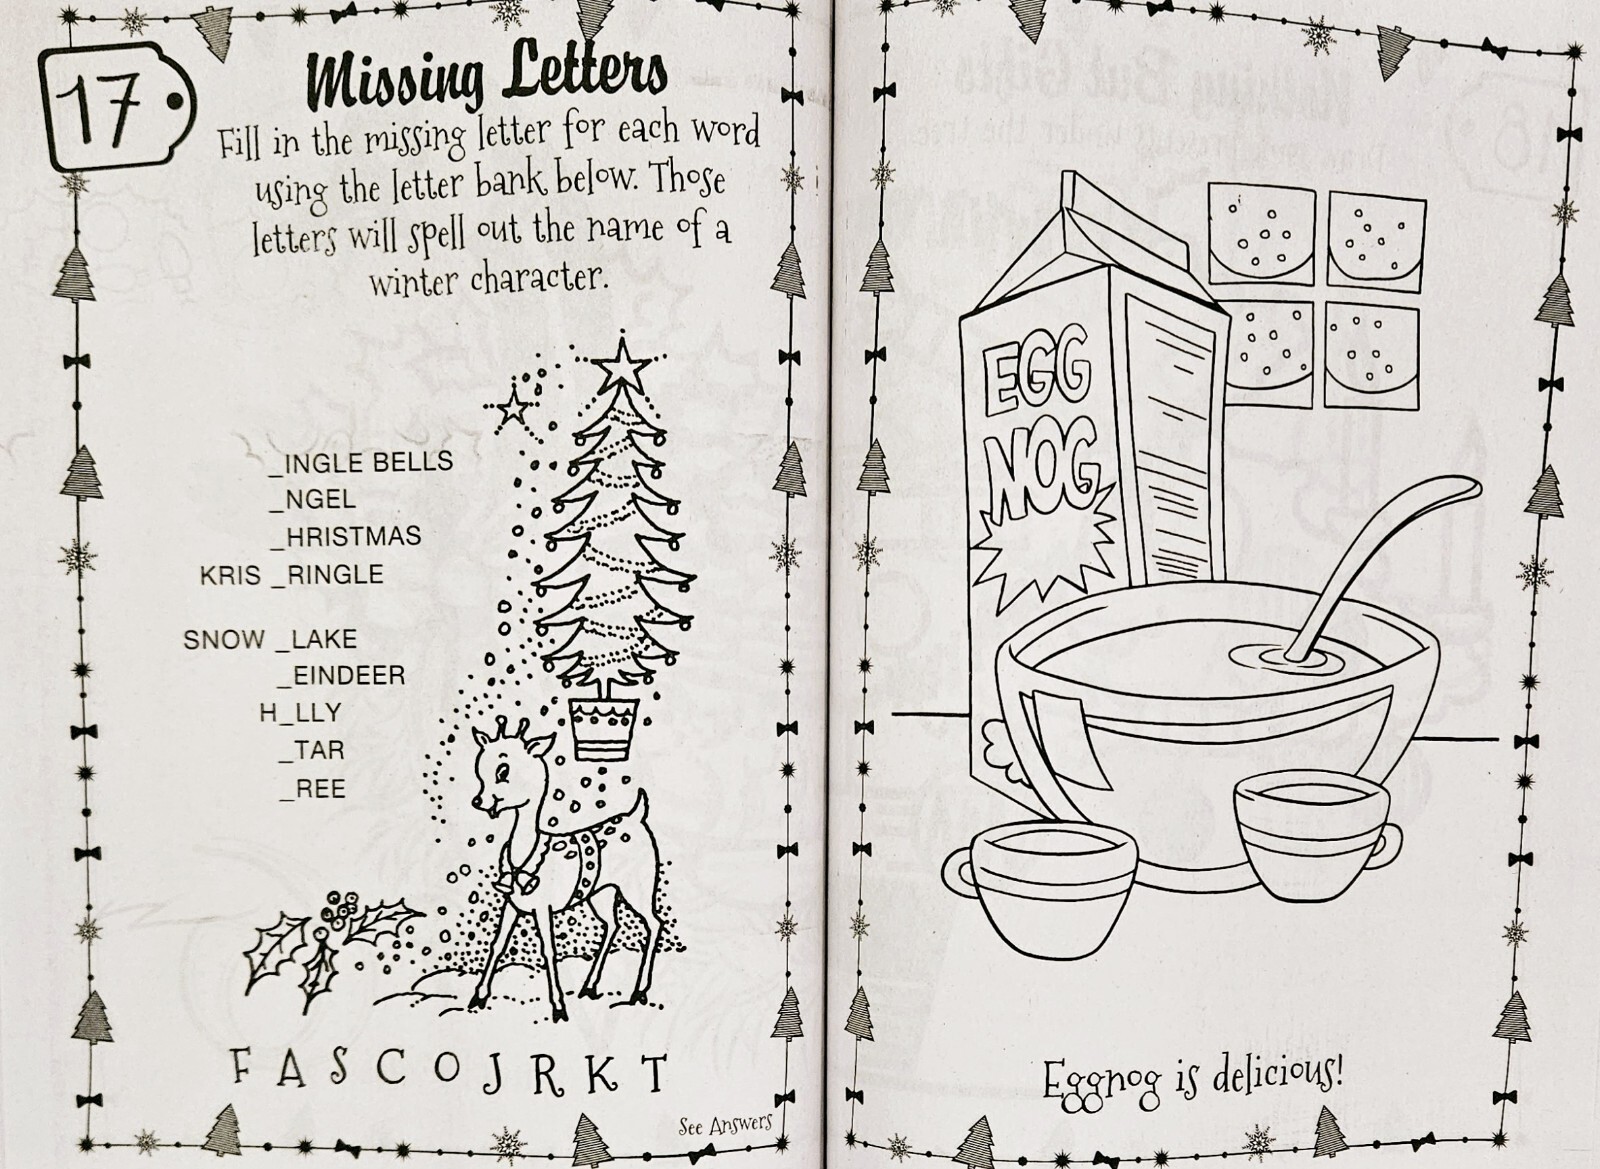 17
Missing Letters
Fill in the missing letter for each word
using the letter bank below. Those
letters will spell out the name of a
winter character.
_INGLE BELLS
_NGEL
_HRISTMAS
KRIS _RINGLE
SNOW _LAKE
_EINDEER
H_LLY
_TAR
_REE
F A S C O J R K T
See Answers
EGG
NOG
Eggnog is delicious!